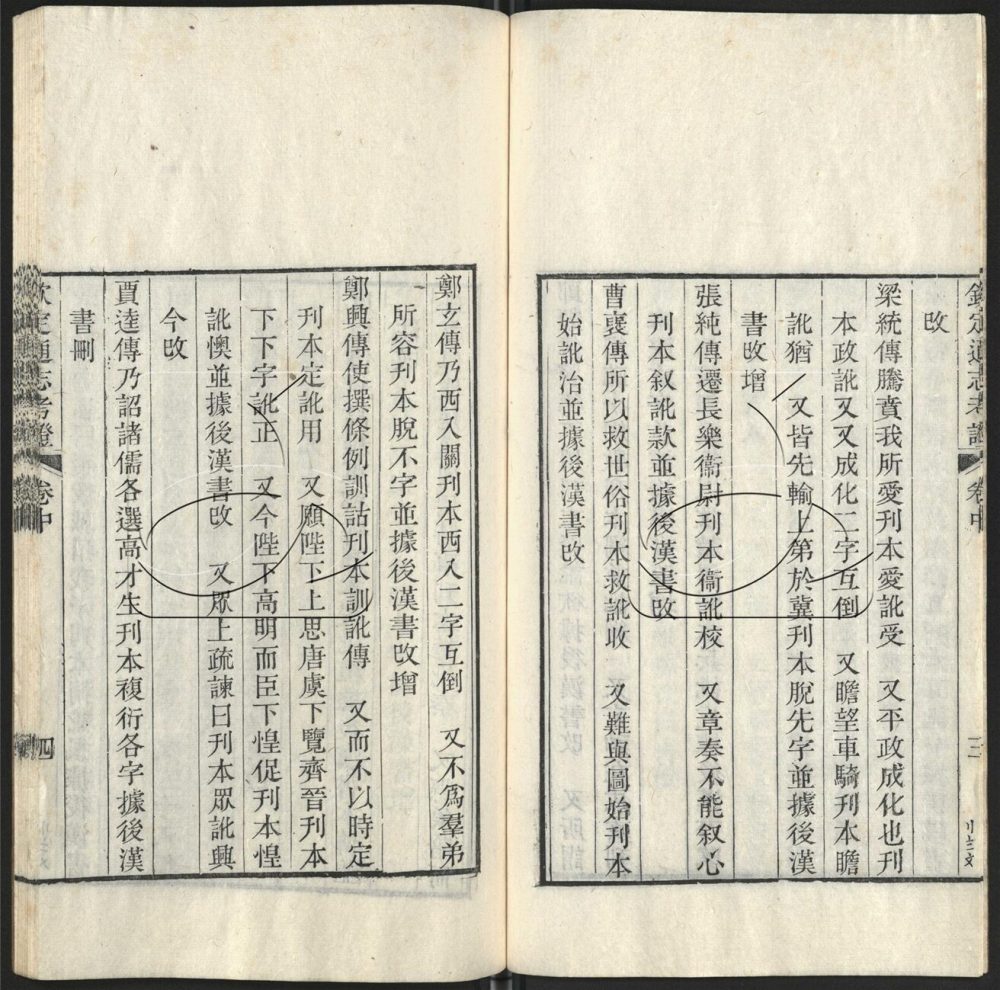 欽定通志考證 卷中 三
改
梁統傳騰賁我所愛刊本愛訛受 又平政成化也刊
本政訛又又成化二字互倒 又瞻望車騎刊本瞻
訛猶 又皆先輸上第於冀刊本脫先字並據後漢
書改增
張純傳遷長樂衞尉刊本衞訛校 又章奏不能叙心
刊本叙訛款並據後漢書改
曹襃傳所以救世俗刊本救訛收 又難與圖始刊本
始訛治並據後漢書改
鄭玄傳乃西入關刊本西入二字互倒 又不為羣弟
所容刊本脫不字並據後漢書改增
鄭興傳使撰條例訓詁刊本訓訛傳 又而不以時定
刊本定訛用 又願陛下上思唐虞下覽齊晉刊本
下下字訛正 又今陛下高明而臣下惶促刊本惶
訛懊並據後漢書改 又眾上疏諫曰刊本眾訛興
今改
賈逵傳乃詔諸儒各選高才生刊本複衍各字據後漢
書刪
欽定通志考證 卷中 四